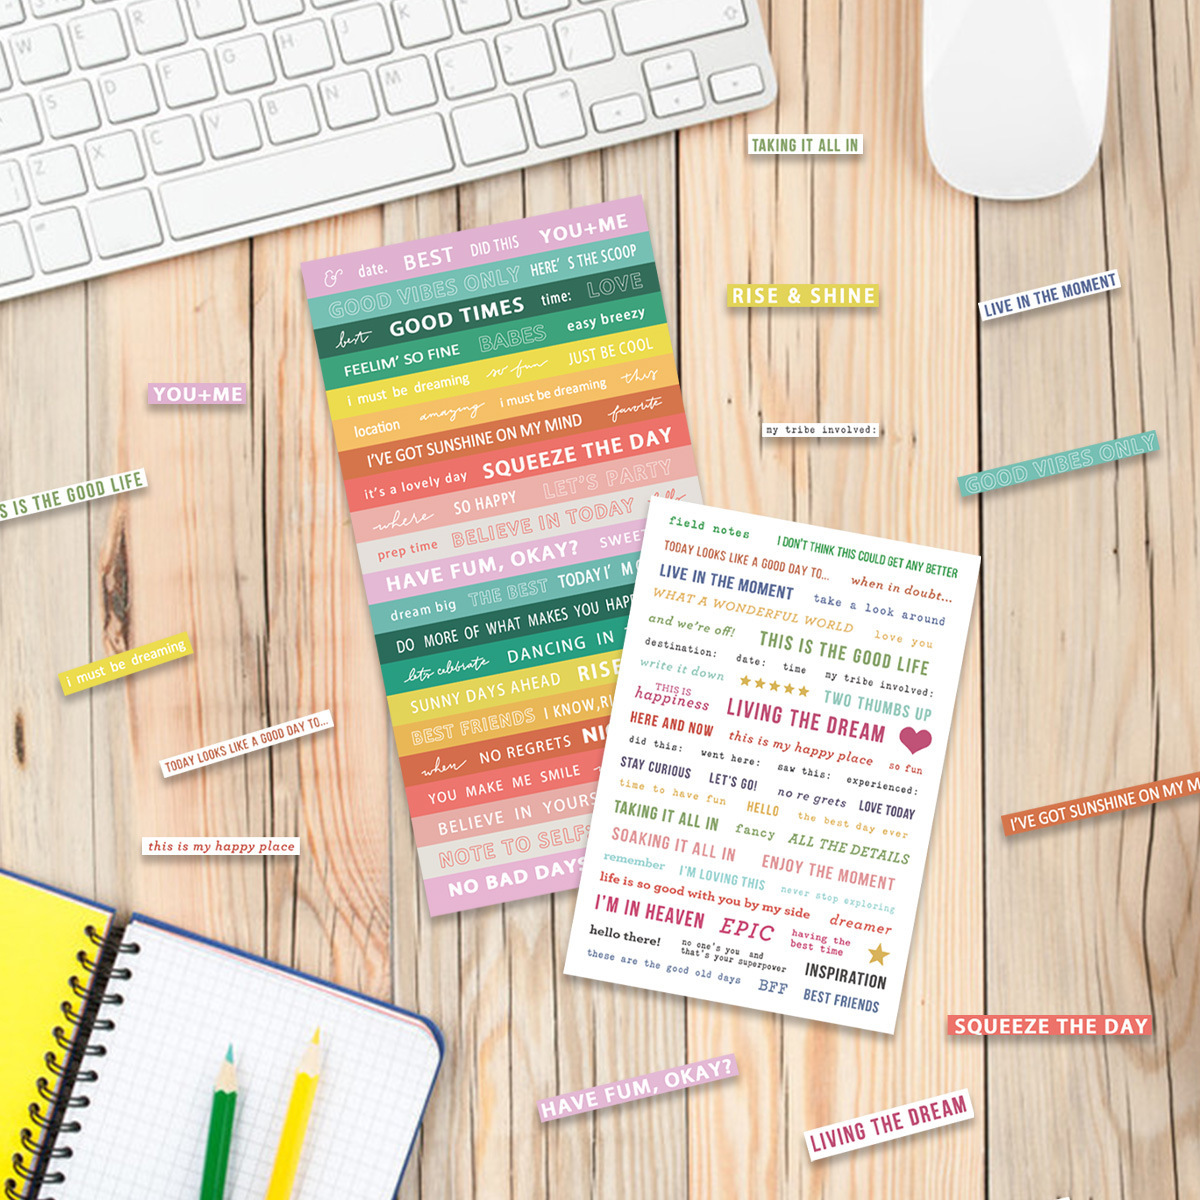 W E R
Y U I O P
D F G H J K L
Z X C V B N M < > ?
TAKING IT ALL IN
RISE & SHINE
LIVE IN THE MOMENT
YOU+ME
my tribe involved:
GOOD VIBES ONLY
S IS THE GOOD LIFE
i must be dreaming
TODAY LOOKS LIKE A GOOD DAY TO...
this is my happy place
I'VE GOT SUNSHINE ON MY M
SQUEEZE THE DAY
HAVE FUM, OKAY?
LIVING THE DREAM
& date. BEST DID THIS YOU+ME
GOOD VIBES ONLY HERE' S THE SCOOP
best GOOD TIMES time: LOVE
FEELIM' SO FINE BABES easy breezy
i must be dreaming so fun JUST BE COOL
location amazing i must be dreaming this
I'VE GOT SUNSHINE ON MY MIND favorite
it's a lovely day SQUEEZE THE DAY
where SO HAPPY LET'S PARTY
prep time BELIEVE IN TODAY hello
HAVE FUM, OKAY? SWEE
dream big THE BEST TODAY I' M
DO MORE OF WHAT MAKES YOU HAP
let's celebrate DANCING IN
SUNNY DAYS AHEAD RISE
BEST FRIENDS I KNOW,RI
when NO REGRETS NI
YOU MAKE ME SMILE
BELIEVE IN YOURS
NOTE TO SELF:
NO BAD DAYS
field notes I DON'T THINK THIS COULD GET ANY BETTER
TODAY LOOKS LIKE A GOOD DAY TO... when in doubt...
LIVE IN THE MOMENT take a look around
WHAT A WONDERFUL WORLD love you
and we're off! THIS IS THE GOOD LIFE
destination: date: time my tribe involved:
write it down TWO THUMBS UP
THIS IS happiness LIVING THE DREAM
HERE AND NOW this is my happy place so fun
did this: went here: saw this: experienced:
STAY CURIOUS LET'S GO! no re grets LOVE TODAY
time to have fun HELLO the best day ever
TAKING IT ALL IN fancy ALL THE DETAILS
SOAKING IT ALL IN ENJOY THE MOMENT
remember I'M LOVING THIS never stop exploring
life is so good with you by my side dreamer
I'M IN HEAVEN EPIC having the best time
hello there! no one's you and that's your superpower INSPIRATION
these are the good old days BFF BEST FRIENDS